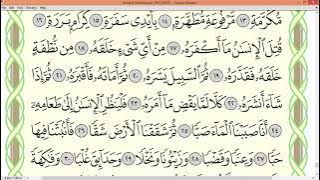 مُّكَرَّمَةٍ ١٣ مَّرْفُوعَةٍ مُّطَهَّرَةٍ ١٤ بِأَيْدِى سَفَرَةٍ ١٥ كِرَامٍ بَرَرَةٍ ١٦
قُتِلَ ٱلْإِنسَٰنُ مَآ أَكْفَرَهُۥ ١٧ مِنْ أَىِّ شَىْءٍ خَلَقَهُۥ ١٨ مِن نُّطْفَةٍ
خَلَقَهُۥ فَقَدَّرَهُۥ ١٩ ثُمَّ ٱلسَّبِيلَ يَسَّرَهُۥ ٢٠ ثُمَّ أَمَاتَهُۥ فَأَقْبَرَهُۥ ٢١ ثُمَّ إِذَا
شَآءَ أَنشَرَهُۥ ٢٢ كَلَّا لَمَّا يَقْضِ مَآ أَمَرَهُۥ ٢٣ فَلْيَنظُرِ ٱلْإِنسَٰنُ إِلَىٰ طَعَامِهِۦٓ
٢٤ أَنَّا صَبَبْنَا ٱلْمَآءَ صَبًّا ٢٥ ثُمَّ شَقَقْنَا ٱلْأَرْضَ شَقًّا ٢٦ فَأَنۢبَتْنَا فِيهَا
حَبًّا ٢٧ وَعِنَبًا وَقَضْبًا ٢٨ وَزَيْتُونًا وَنَخْلًا ٢٩ وَحَدَآئِقَ غُلْبًا ٣٠ وَفَٰكِهَةً